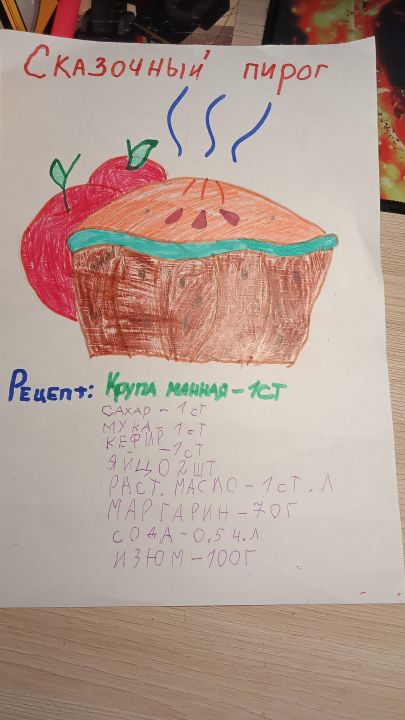 Сказочный пирог
Рецепт: Крупа манная - 1ст
САХАР - 1ст
МУКА - 1ст
КЕФИР - 1ст
ЯЙЦО 2ШТ
РАСТ. МАСЛО - 1ст.Л
МАРГАРИН - 70Г
СОДА - 0.5ч.Л
ИЗЮМ - 100Г